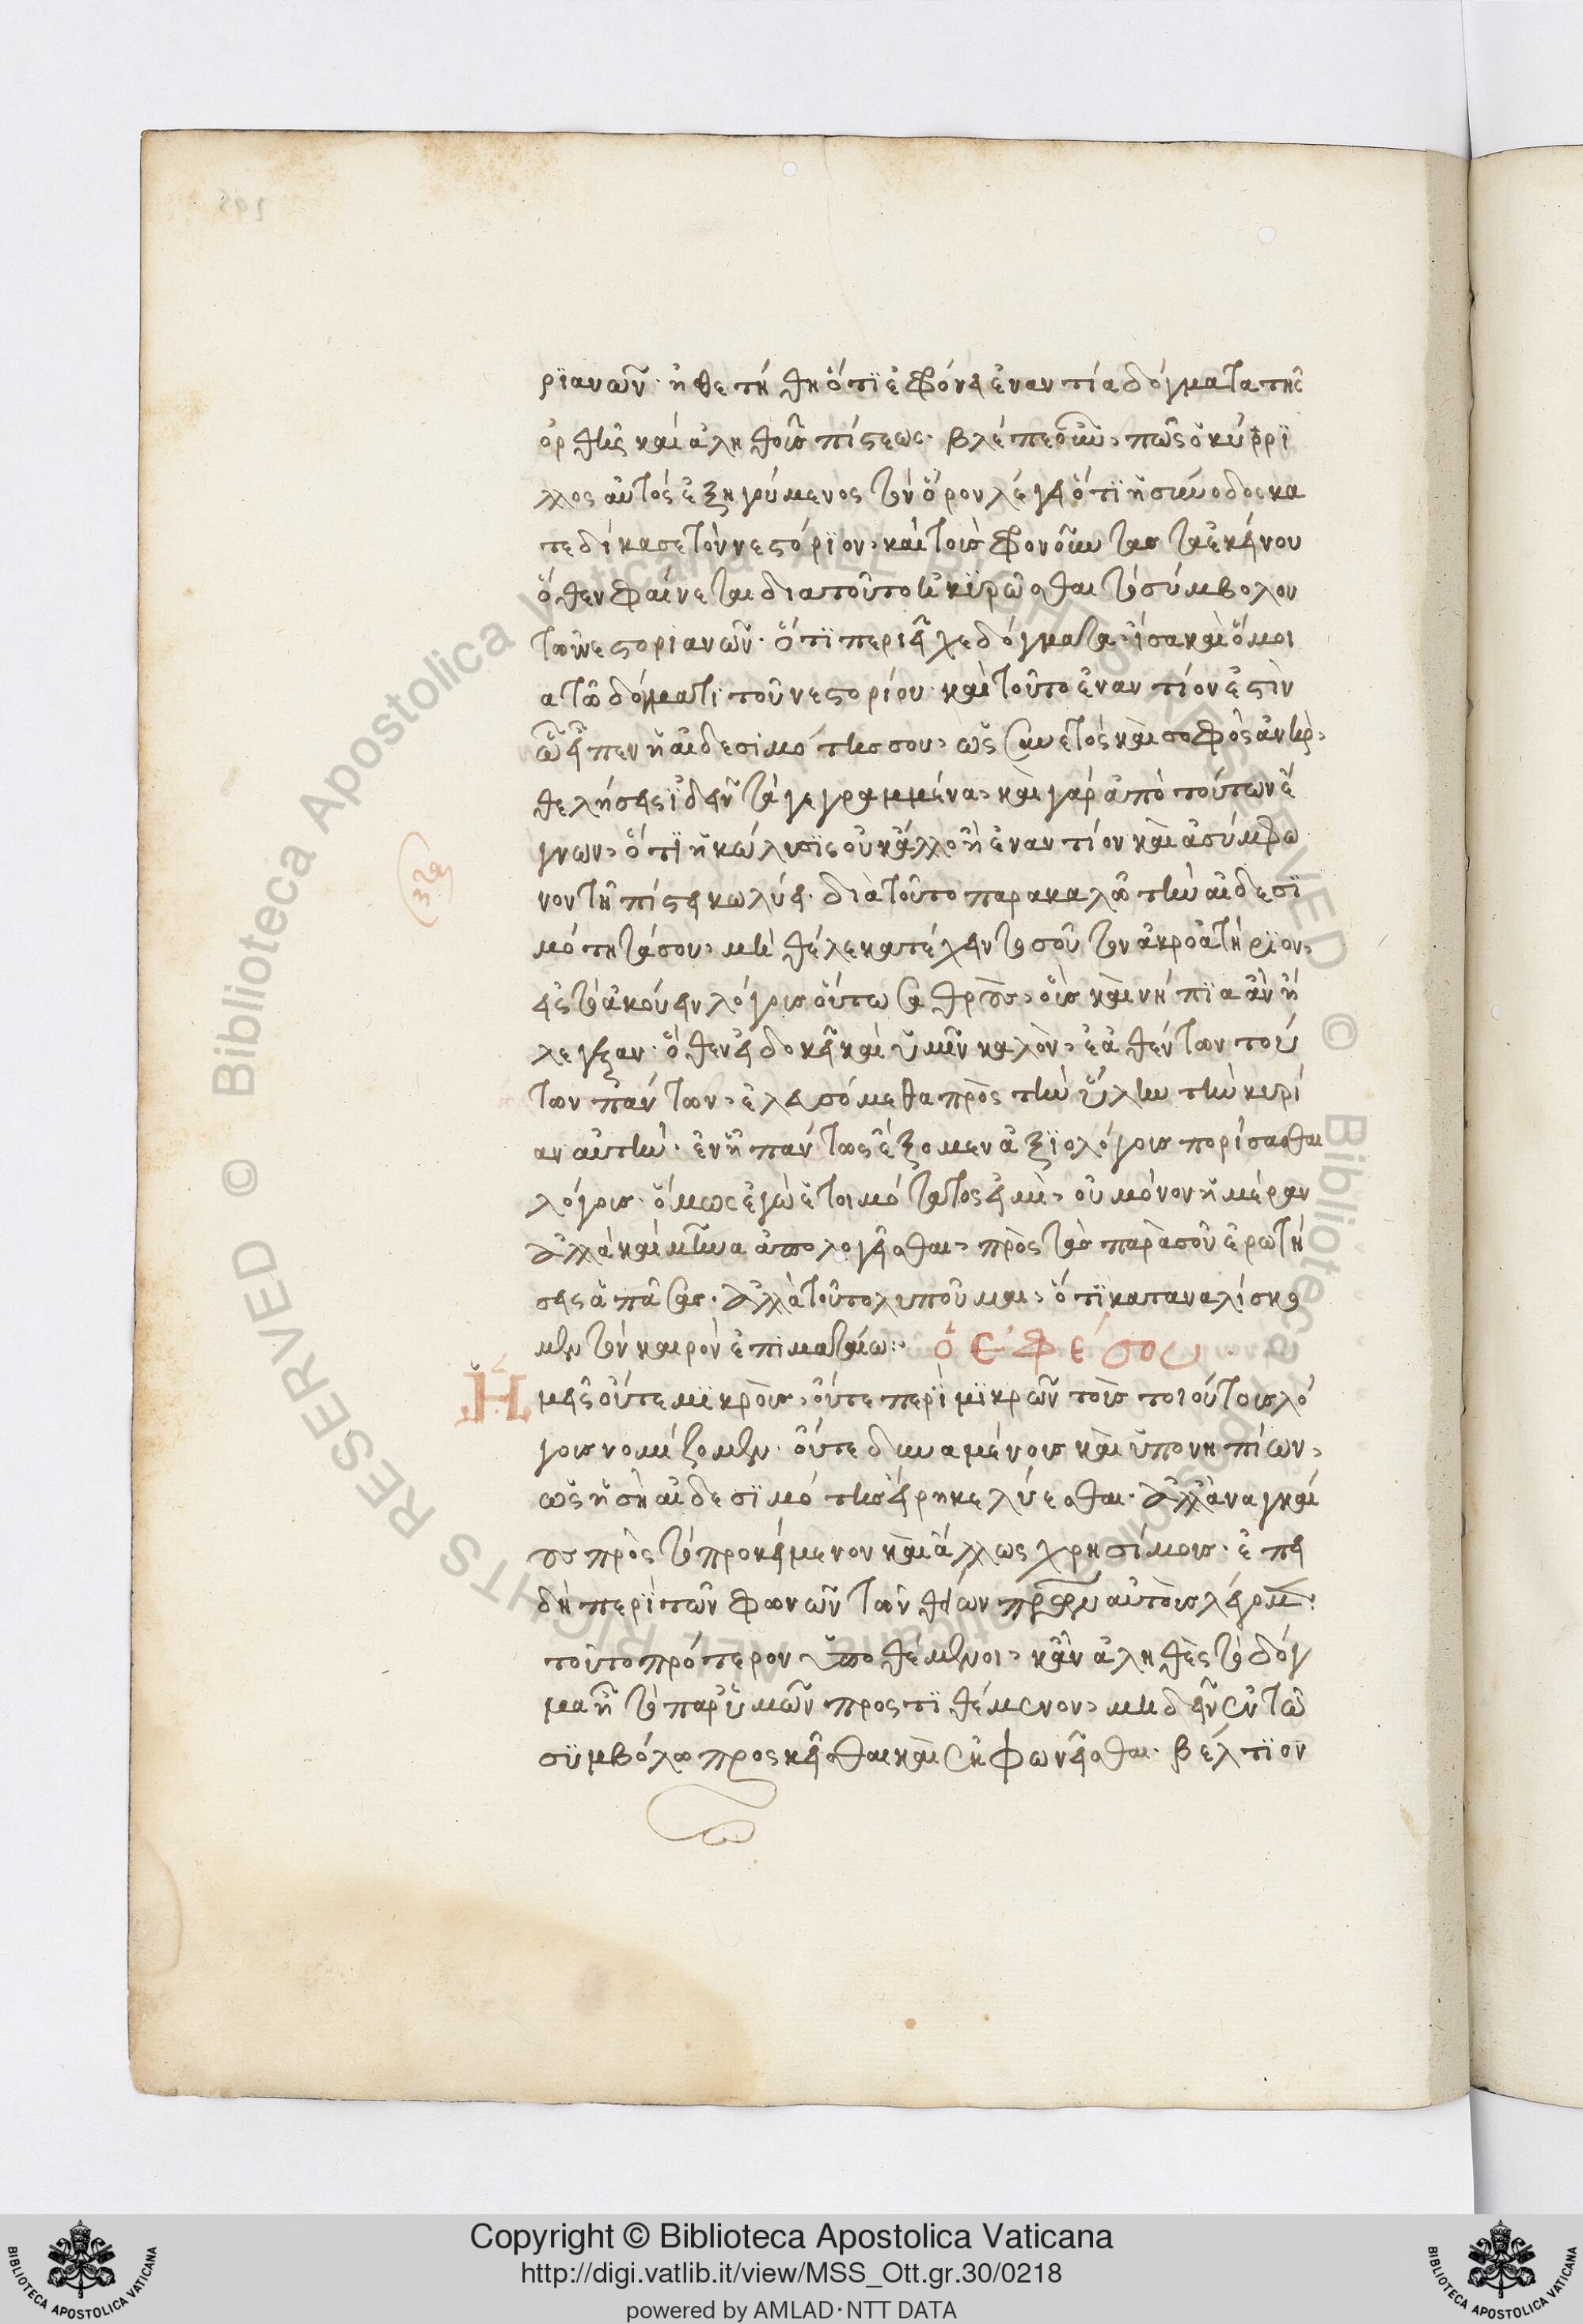 ριανῶν· ἠθετήθη ὅτι ἐφρόνει ἐναντία δόγματα τῆς
ὀρθῆς καὶ ἀληθοῦς πίστεως· βλέπε πῶς ὁ κύρι
λλος αὐτὸς ἐξηγούμενος τὸν ὅρον λέγει ὅτι ἡ σύνοδος κα
τεδίκασε τὸν νεστόριον, καὶ τοὺς φρονοῦντας τὰ ἐκείνου
ὅθεν φαίνεται διατοῦτο κεκυρῶσθαι τὸ σύμβολον
τῶν νεστοριανῶν· ὅτι περιεῖχε δόγματα ἴσα καὶ ὅμοι
α τῶ δόγματι τοῦ νεστορίου· καὶ τοῦτο ἐναντίον ἐστὶν
ὧ εἶπεν ἡ αἰδεσιμότης σου, ὡς συνετὸς καὶ σοφὸς ἀνὴρ,
θελήσεις ἰδεῖν τὰ γεγραμμένα, καὶ γὰρ ἀπὸ τούτων ἔ
γνων, ὅτι ἡ κώλυσις οὐκ ἄλλο ἢ ἐναντίον καὶ ἀσύμφω
νον τῆ πίστει κωλύει· διὰ τοῦτο παρακαλῶ τὴν αἰδεσι
μότητά σου, μὴ θέλε κατέχειν τὸ σοῦ τὸν ἀκροατήριον,
εἰς τὸ ἀκούειν λόγους οὕτω σαθροὺς, οὓς καὶ νήπια ἂν ἤ
λεγξαν· ὅθεν εἰ δοκεῖ καὶ ὑμῖν καλὸν, ἐαθέντων τού
των πάντων, ἐλευσόμεθα πρὸς τὴν ὕλην τὴν κυρί
αν αὐτὴν· ἐν ἧ πάντως ἕξομεν ἀξιολόγους πορίσασθαι
λόγους· ὅμως ἐγὼ ἑτοιμότατός εἰμι, οὐ μόνον ἡμέραν
ἀλλὰ καὶ μῆνα ἀπολογεῖσθαι, πρὸς τὰς παρὰ σοῦ ἐρωτή
σεις ἁπάσας· ἀλλὰ τοῦτο λυποῦμαι, ὅτι καταναλίσκο
μεν τὸν καιρὸν ἐπιματαίω:· ὁ ἐφέσου·
Ἡμεῖς οὔτε μικροὺς, οὔτε περὶ μικρῶν τοὺς τοιούτους λό
γους νομίζομεν· οὔτε δυναμένους καὶ ὑπὸ νηπίων,
ὡς ἡ σὴ αἰδεσιμότης εἴρηκε λύεσθαι· ἀλλ' ἀναγκαί
ους πρὸς τὸ προκείμενον καὶ ἄλλως χρησίμους· ἐπει
δὴ περὶ τῶν φωνῶν τῶν θείων πατέρων αὐτοὺς λέγομεν·
τοῦτο πρότερον ὑποθέμενοι, κἂν ἀληθὲς τὸ δόγ
μα ἦ τὸ παρ' ὑμῶν προστιθέμενον, μὴ δεῖν ἐν τῶ
συμβόλω προσκεῖσθαι καὶ ἐκφωνεῖσθαι· βέλτιον
Copyright © Biblioteca Apostolica Vaticana
http://digi.vatlib.it/view/MSS_Ott.gr.30/0218
powered by AMLAD·NTT DATA